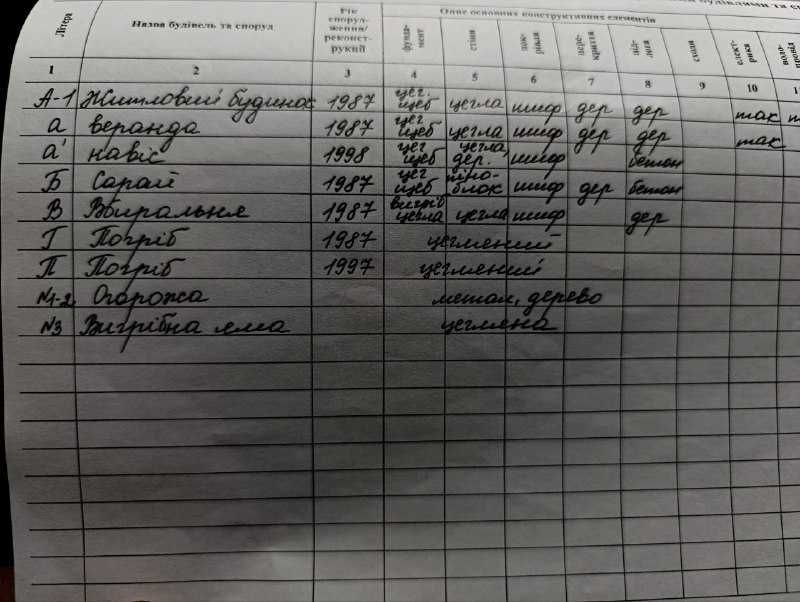 будівлями та
Опис основних конструктивних елементів
Літера
Назва будівель та споруд
Рік споруд-ження/реконст-рукції
фунда-мент
стіни
пок-рівля
пере-криття
під-лога
сходи
елект-рика
водо-провід
1 2 3 4 5 6 7 8 9 10 11
А-1 Житловий будинок 1987 цег. щеб цегла шиф дер дер так
а веранда 1987 цег щеб цегла шиф дер дер так
а' навіс 1998 цег щеб цегла, дер. шиф бетон
Б Сарай 1987 цег щеб піно-блок шиф дер бетон
В Вбиральня 1987 вигріб цегла цегла шиф дер
Г Погріб 1987 цегляний
П Погріб 1997 цегляний
№1-2 Огорожа метал, дерево
№3 Вигрібна яма цегляна